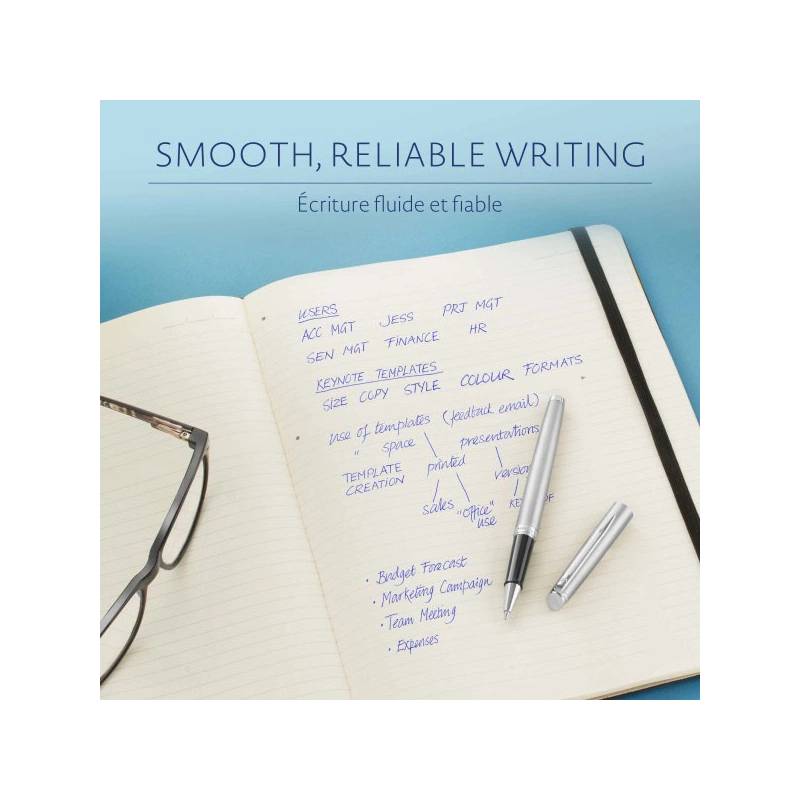 SMOOTH, RELIABLE WRITING
Écriture fluide et fiable
USERS
ACC MGT JESS PRJ MGT
SEN MGT FINANCE HR
KEYNOTE TEMPLATES
SIZE COPY STYLE COLOUR FORMATS
use of templates (feedback email)
" space printed presentations
TEMPLATE CREATION
sales "office" use
• Budget Forecast
• Marketing Campaign
• Team Meeting
• Expenses